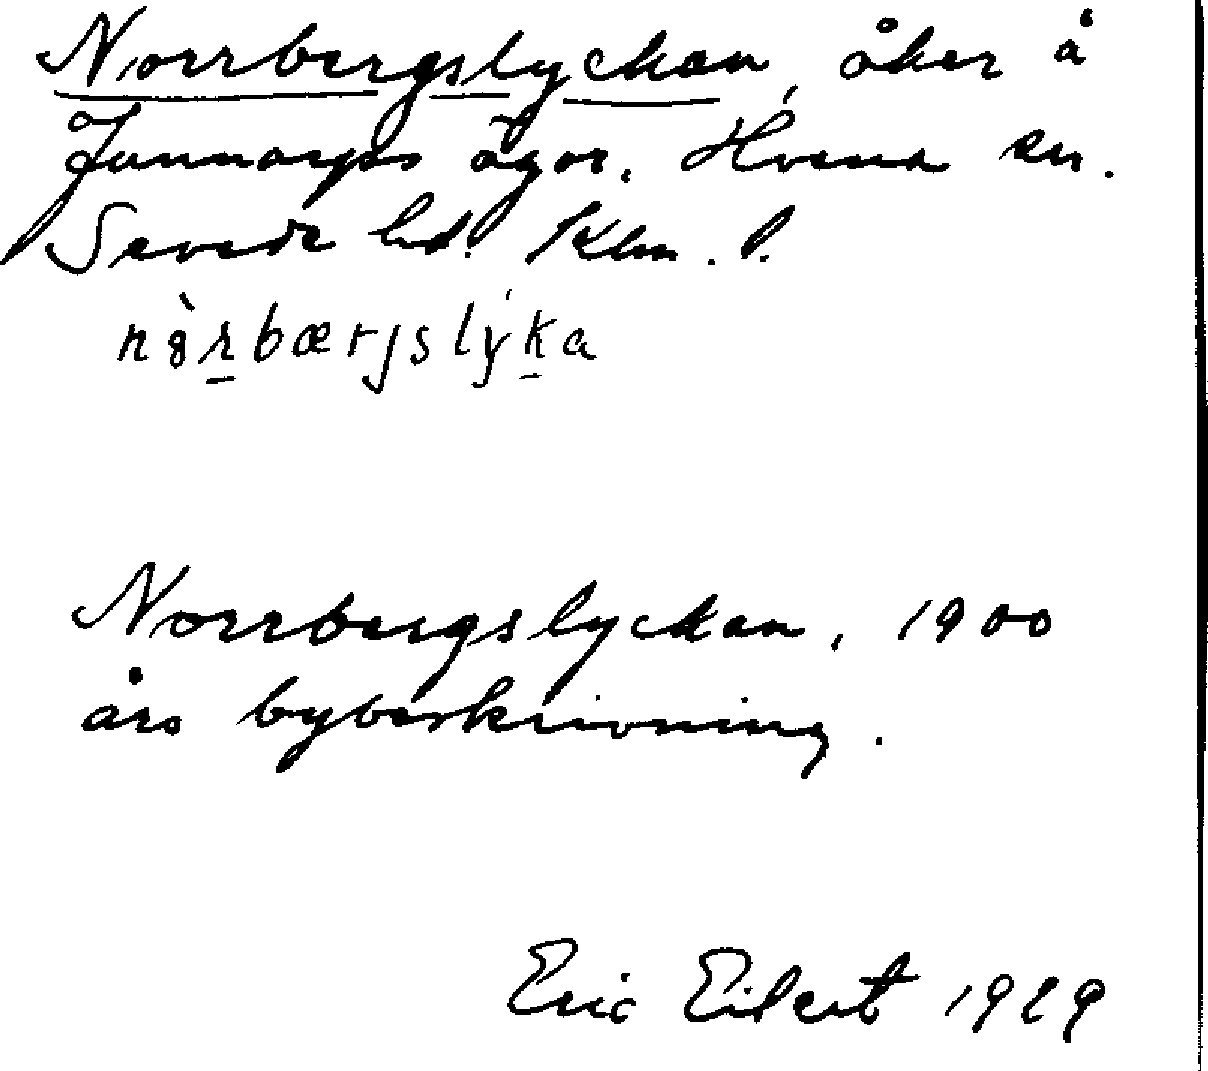 Norrbergslyckan, åker å
Junnarps ägor. Hvena sn.
Sevede hd. Klm. l.
nȣ̀r̲bærjslýk̲a
Norrbergslyckan, 1900
års bybeskrivning.
Eric Eilert 1929